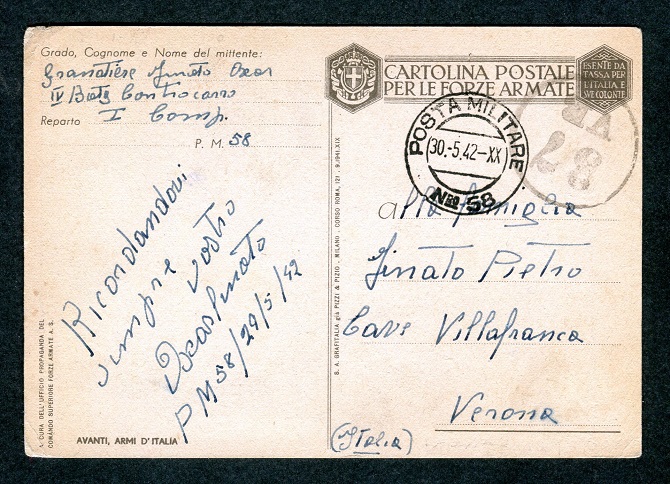 Grado, Cognome e Nome del mittente:
Granatiere Oscar
IV Batg Controcarro
Reparto I Comp.
P. M. 58
Ricordandovi
sempre
vostro
Oscar
PM 58/29/5/42
A CURA DELL'UFFICIO PROPAGANDA DEL
COMANDO SUPERIORE FORZE ARMATE A. S.
AVANTI, ARMI D'ITALIA
S. A. GRAFITALIA già PIZZI & PIZIO - MILANO - CORSO ROMA, 121 - 9.1941.XIX
CARTOLINA POSTALE
PER LE FORZE ARMATE
ESENTE DA
TASSA PER
L'ITALIA E
LE COLONIE
POSTA MILITARE
30.-5.42-XX
No 58
alla famiglia
Pietro
Cave Villafranca
Verona
(Italia)